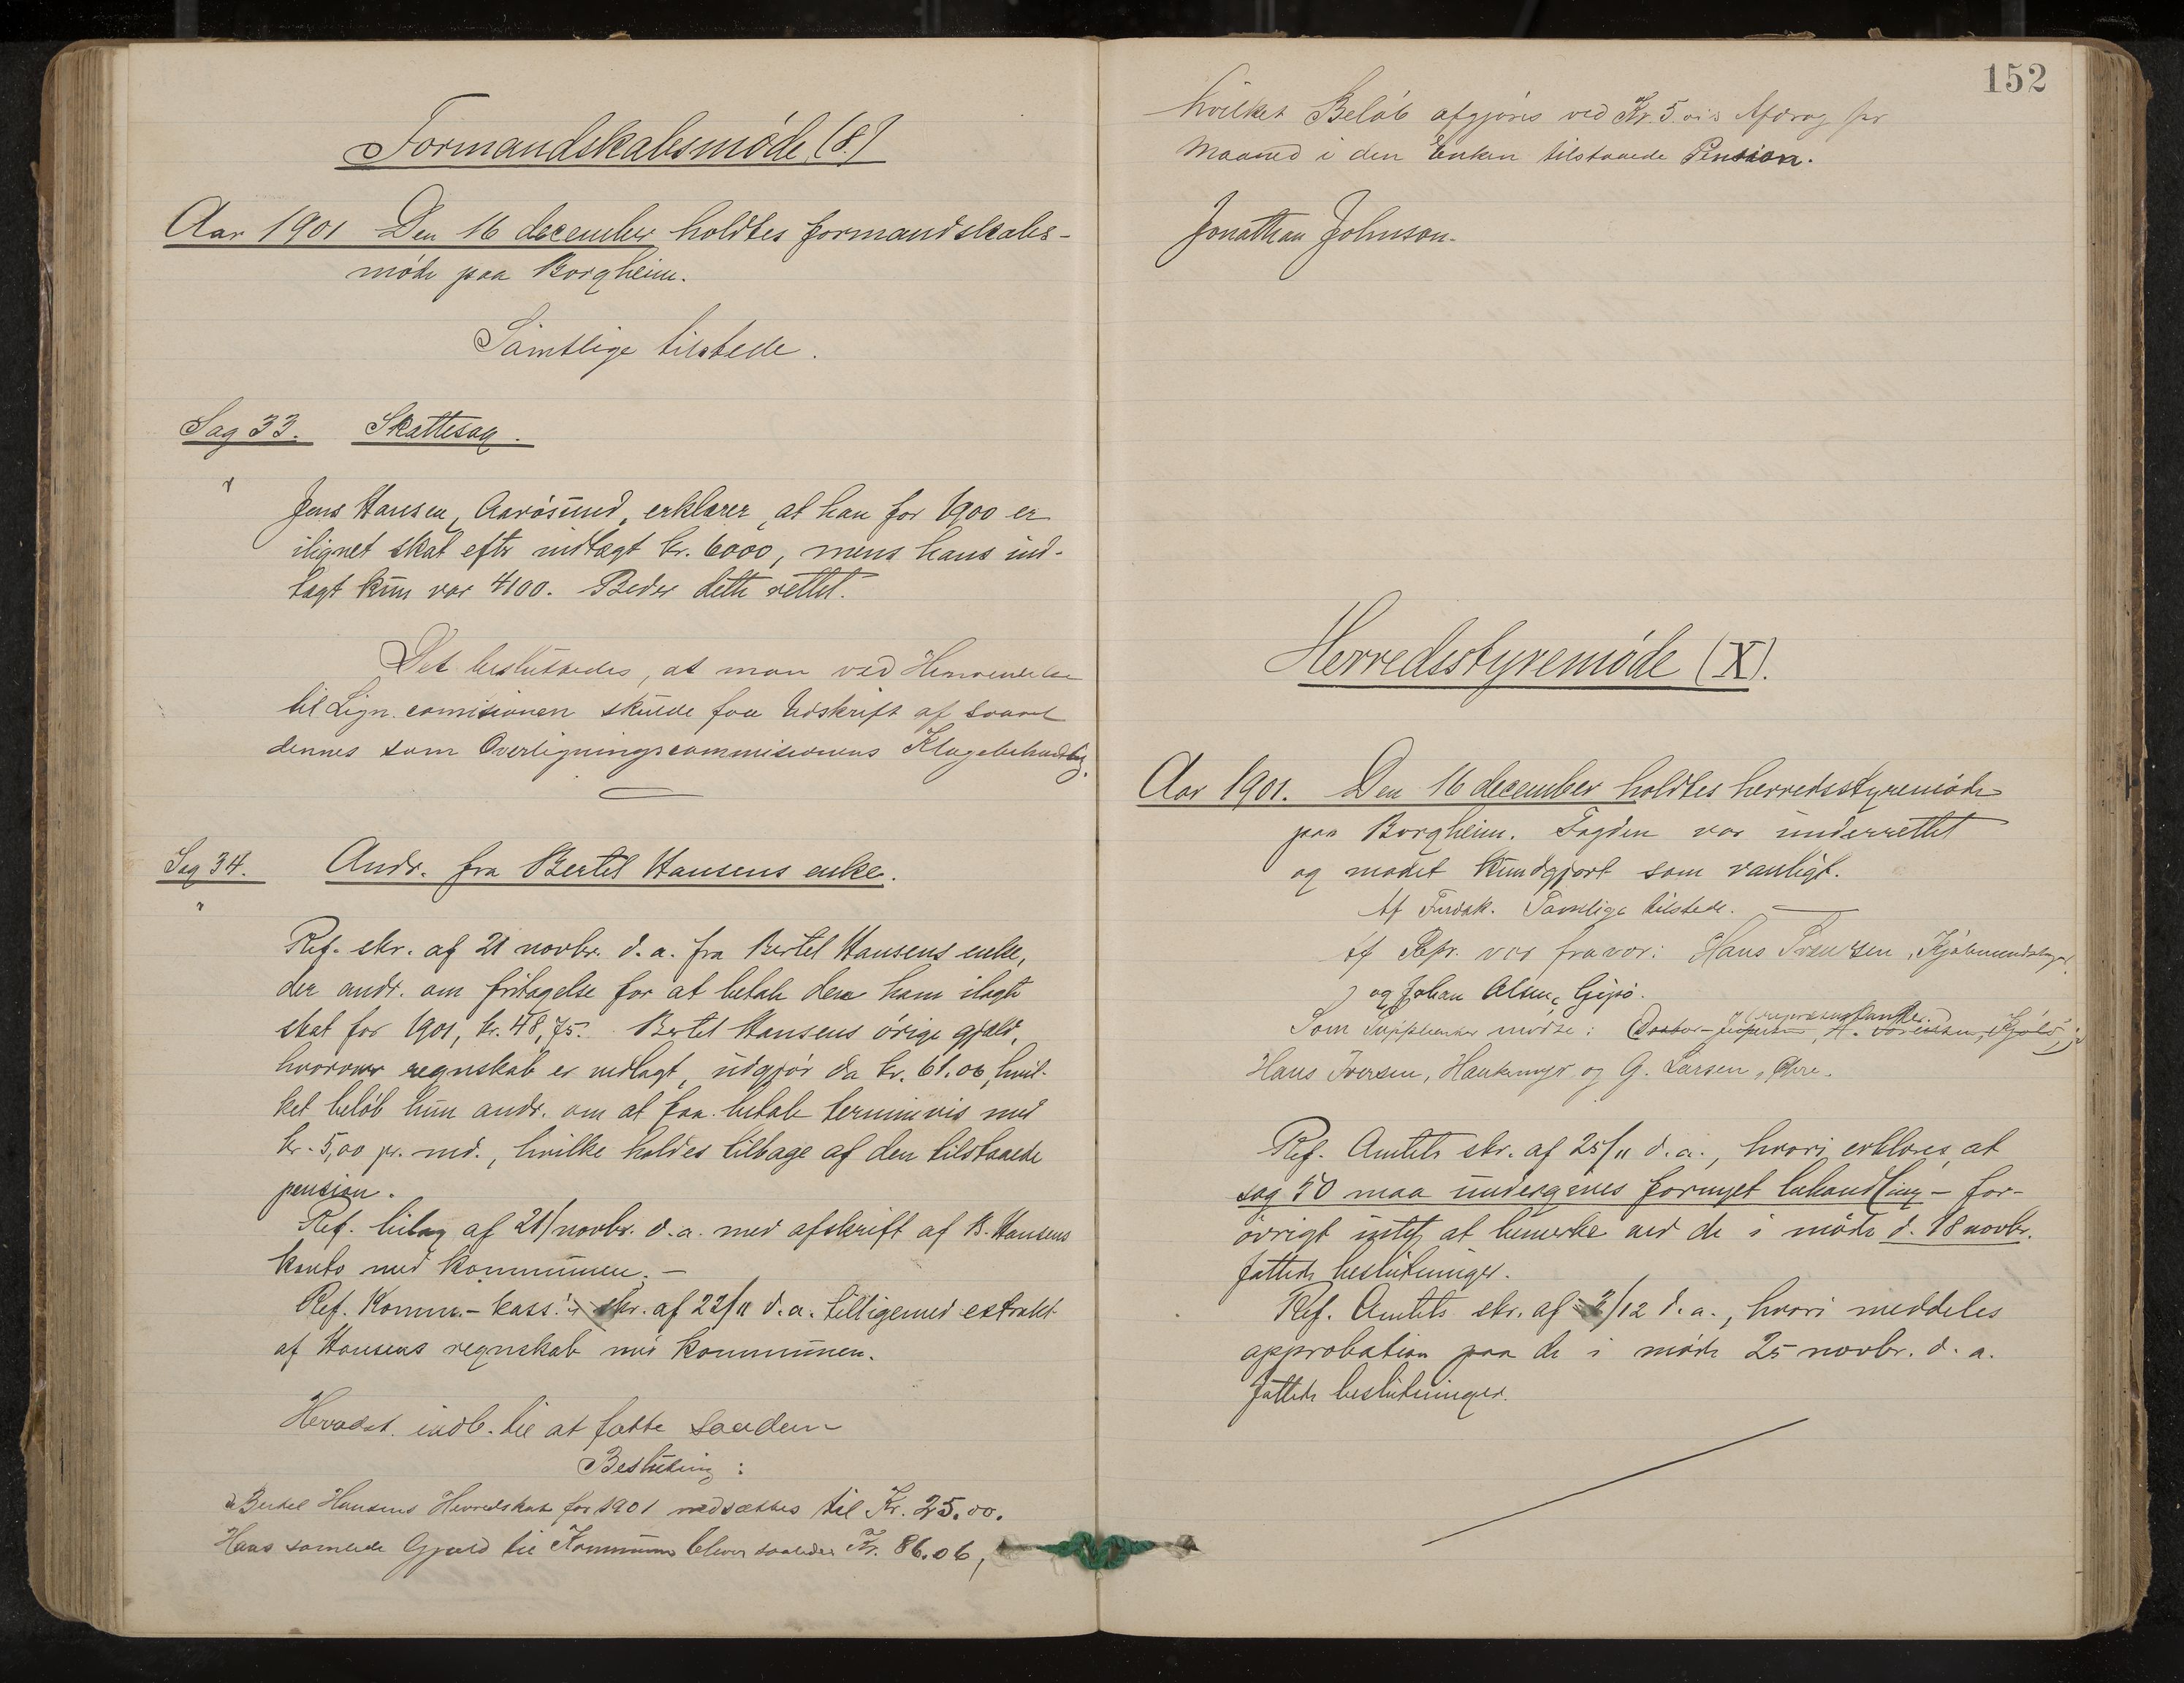 Formandskabsmöde (8.)
Aar 1901 Den 16 december holdtes formandskabs-
möde paa Borgheim.
Samtlige tilstede.
Sag 33. Skattesag.
Jens Hansen, Aarösund, erklærer, at han for 1900 er
ilignet skat efter indtægt kr. 6000, mens hans ind-
tægt kun var 4100. Beder dette rettet.
Det besluttedes, at man ved Henvendelse
til Lign. comisionen skulde faa Udskrift af saavel
dennes som Overligningscommisionens Klagebehandling.
Sag 34. Andr. fra Bertel Hansens enke.
Ref. skr. af 21 novbr. d. a. fra Bertel Hansens enke,
der andr. om fritagelse for at betale den ham ilagte
skat for 1901, kr. 48,75. Bertel Hansens örige gjæld,
hvorover regnskab er vedlagt, udgjör da kr. 61.06, hvil-
ket belöb hun andr. om at faa betale terminvis med
kr. 5,00 pr. md., hvilke holdes tilbage af den tilstaaede
pension.
Ref. bilag af 21/novbr. d. a. med afskrift af B. Hansens
konto med kommunen. -
Ref. Komm.-kass.'s skr. af 22/11 d. a. tilligemed extrakt
af Hansens regnskab med kommunen.
Herredst. indb. til at fatte saaden
Beslutning :
Bertel Hansens Herredskat for 1901 nedsættes til Kr. 25.00.
Hans samlede Gjæld til Kommunen bliver saaledes Kr. 86.06,
152
hvilket Belöb afgjöres ved Kr. 5 vis Afdrag pr
Maaned i den Enken tilstaaede Pension.
Jonathan Johnson.
Herredsstyremöde (X).
Aar 1901. Den 16 december holdtes herredsstyremöde
paa Borgheim. Fogden var underrettet
og mödet kundgjort som vanligt.
Af Fmdsk. Samtlige tilstede.
Af Repr. var fravær: Hans Svendsen,
og Johan Olsen, Gipö.
repræsentanter
Som Suppleanter mödte:
Hans Iversen, og G. Larsen, Öre.
Ref. Amtets skr. af 25/11 d. a., hvori erklæres, at
sag 50 maa undergives fornyet behandling - for-
övrigt intet at bemerke ved de i möde d. 18 novbr.
fattede beslutninger.
Ref. Amtets skr. af 2/12 d. a., hvori meddeles
approbation paa de i möde 25 novbr. d. a.
fattede beslutninger.